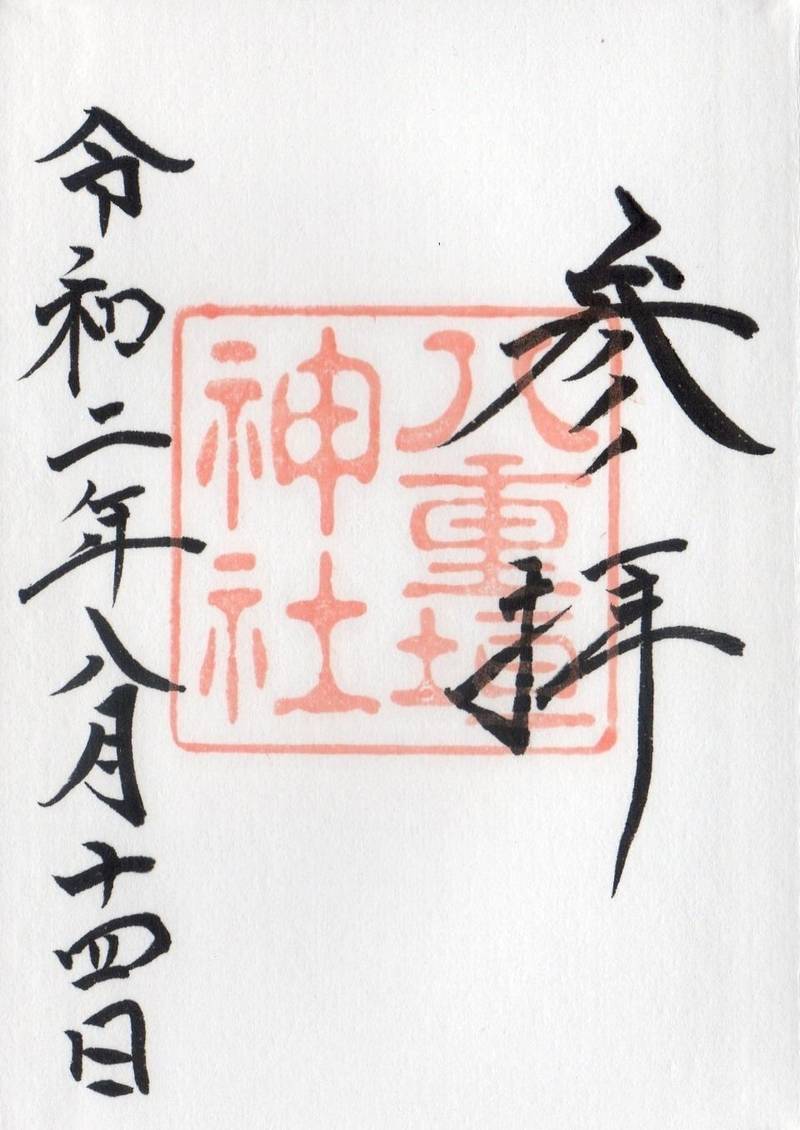 参拝
八重垣
神社
令和二年八月十四日